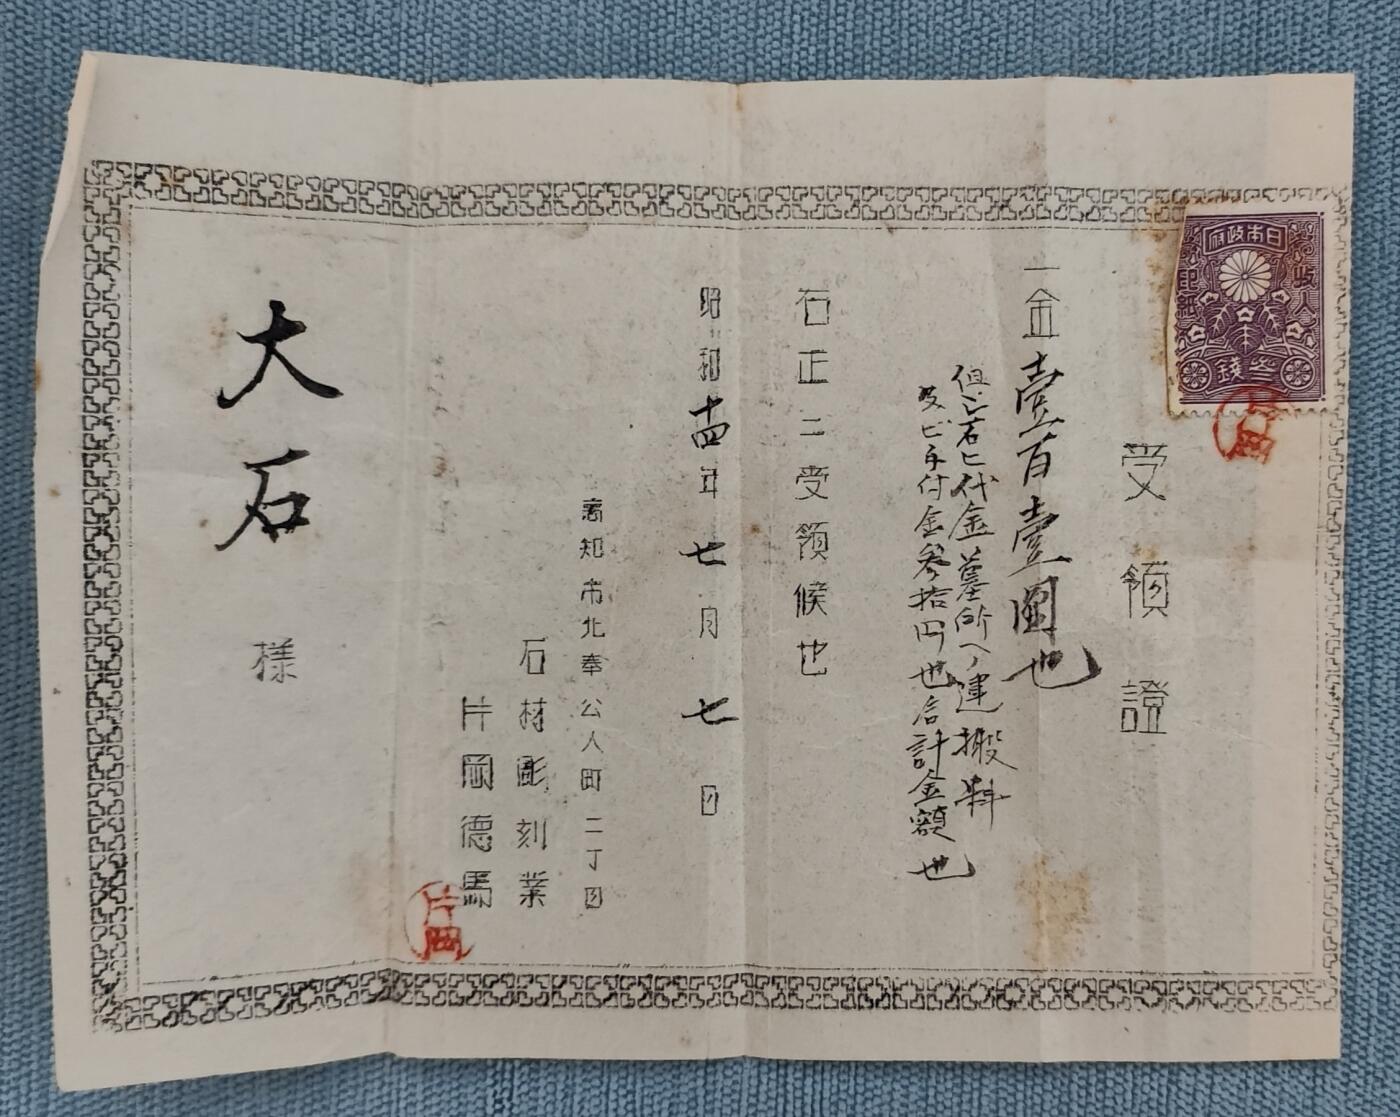 日本政府
収入
印紙
参銭
片岡
受領證
一金壹百壹圓也
但シ石ヒ代金墓所ヘノ運搬料
及ビ手付金参拾円也合計金額也
右正ニ受領候也
昭和十四年七月七日
高知市北奉公人町二丁目
石材彫刻業
片岡德馬
片岡
大石様